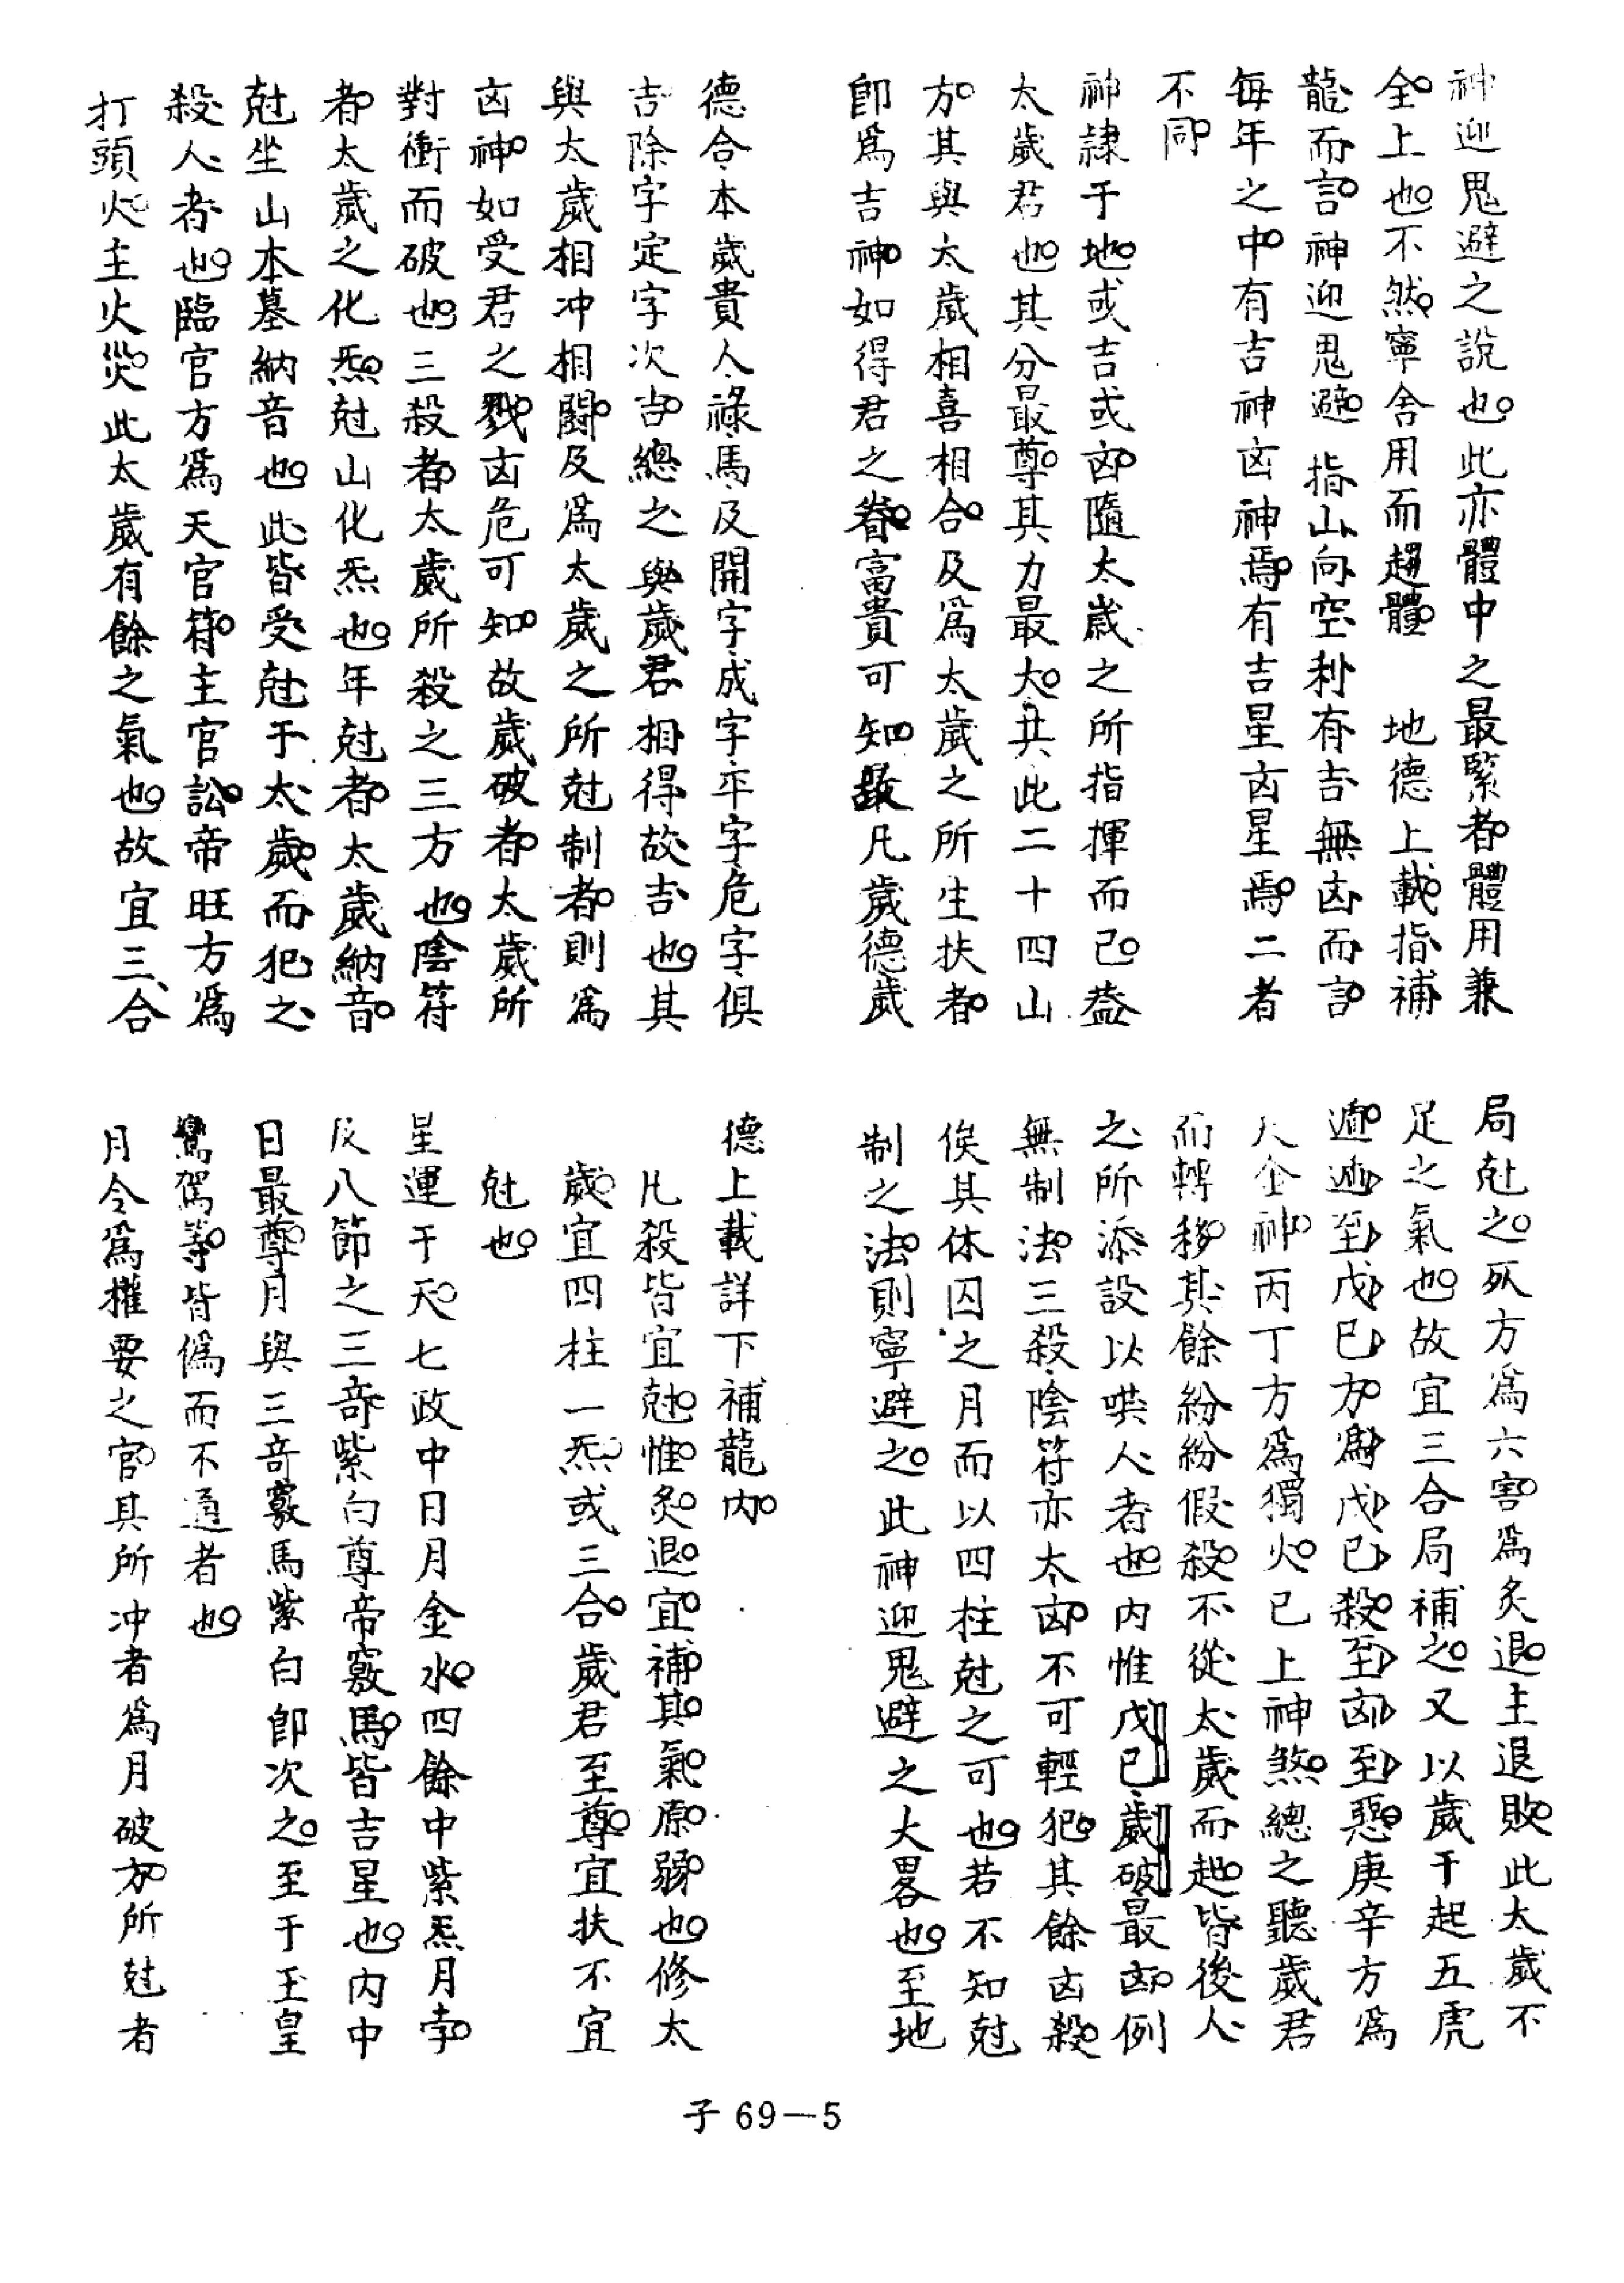 神迎鬼避之說也此亦體中之最緊者體用兼
全上也不然寧舍用而趨體 地德上載指補
龍而言神迎鬼避 指山向空利有吉無凶而言
每年之中有吉神凶神焉有吉星凶星焉二者
不同
神隷于地或吉或凶隨太歲之所指揮而已葢
太歲君也其分最尊其力最大共此二十四山
方其與太歲相喜相合及爲太歲之所生扶者
卽爲吉神如得君之眷富貴可知故凡歲德歲
德合本歲貴人祿馬及開字成字平字危字俱
吉除字定字次吉總之與歲君相得故吉也其
與太歲相冲相鬬及爲太歲之所尅制者則爲
凶神如受君之戮凶危可知故歲破者太歲所
對衝而破也三殺者太歲所殺之三方也陰符
者太歲之化炁尅山化炁也年尅者太歲納音
尅坐山本墓納音也此皆受尅于太歲而犯之
殺人者也臨官方爲天官符主官訟帝旺方爲
打頭火主火災此太歲有餘之氣也故宜三合
局尅之死方爲六害爲炙退主退敗此太歲不
足之氣也故宜三合局補之又以歲干起五虎
遁遁至戊巳方爲戊巳殺至凶至惡庚辛方爲
天金神丙丁方爲獨火已上神煞總之聽歲君
而轉移其餘紛紛假殺不從太歲而起皆後人
之所添設以哄人者也内惟戊巳歲破最凶例
無制法三殺陰符亦太凶不可輕犯其餘凶殺
俟其休囚之月而以四柱尅之可也若不知尅
制之法則寧避之此神迎鬼避之大畧也至地
德上載詳下補龍内
凡殺皆宜尅惟炙退宜補其氣原弱也修太
歲宜四柱一炁或三合歲君至尊宜扶不宜
尅也
星運于天七政中日月金水四餘中紫炁月孛
及八節之三竒紫白尊帝竅馬皆吉星也内中
日最尊月與三竒竅馬紫白卽次之至于玉皇
鸞駕等皆僞而不通者也
月令爲權要之官其所冲者爲月破方所尅者
子69—5